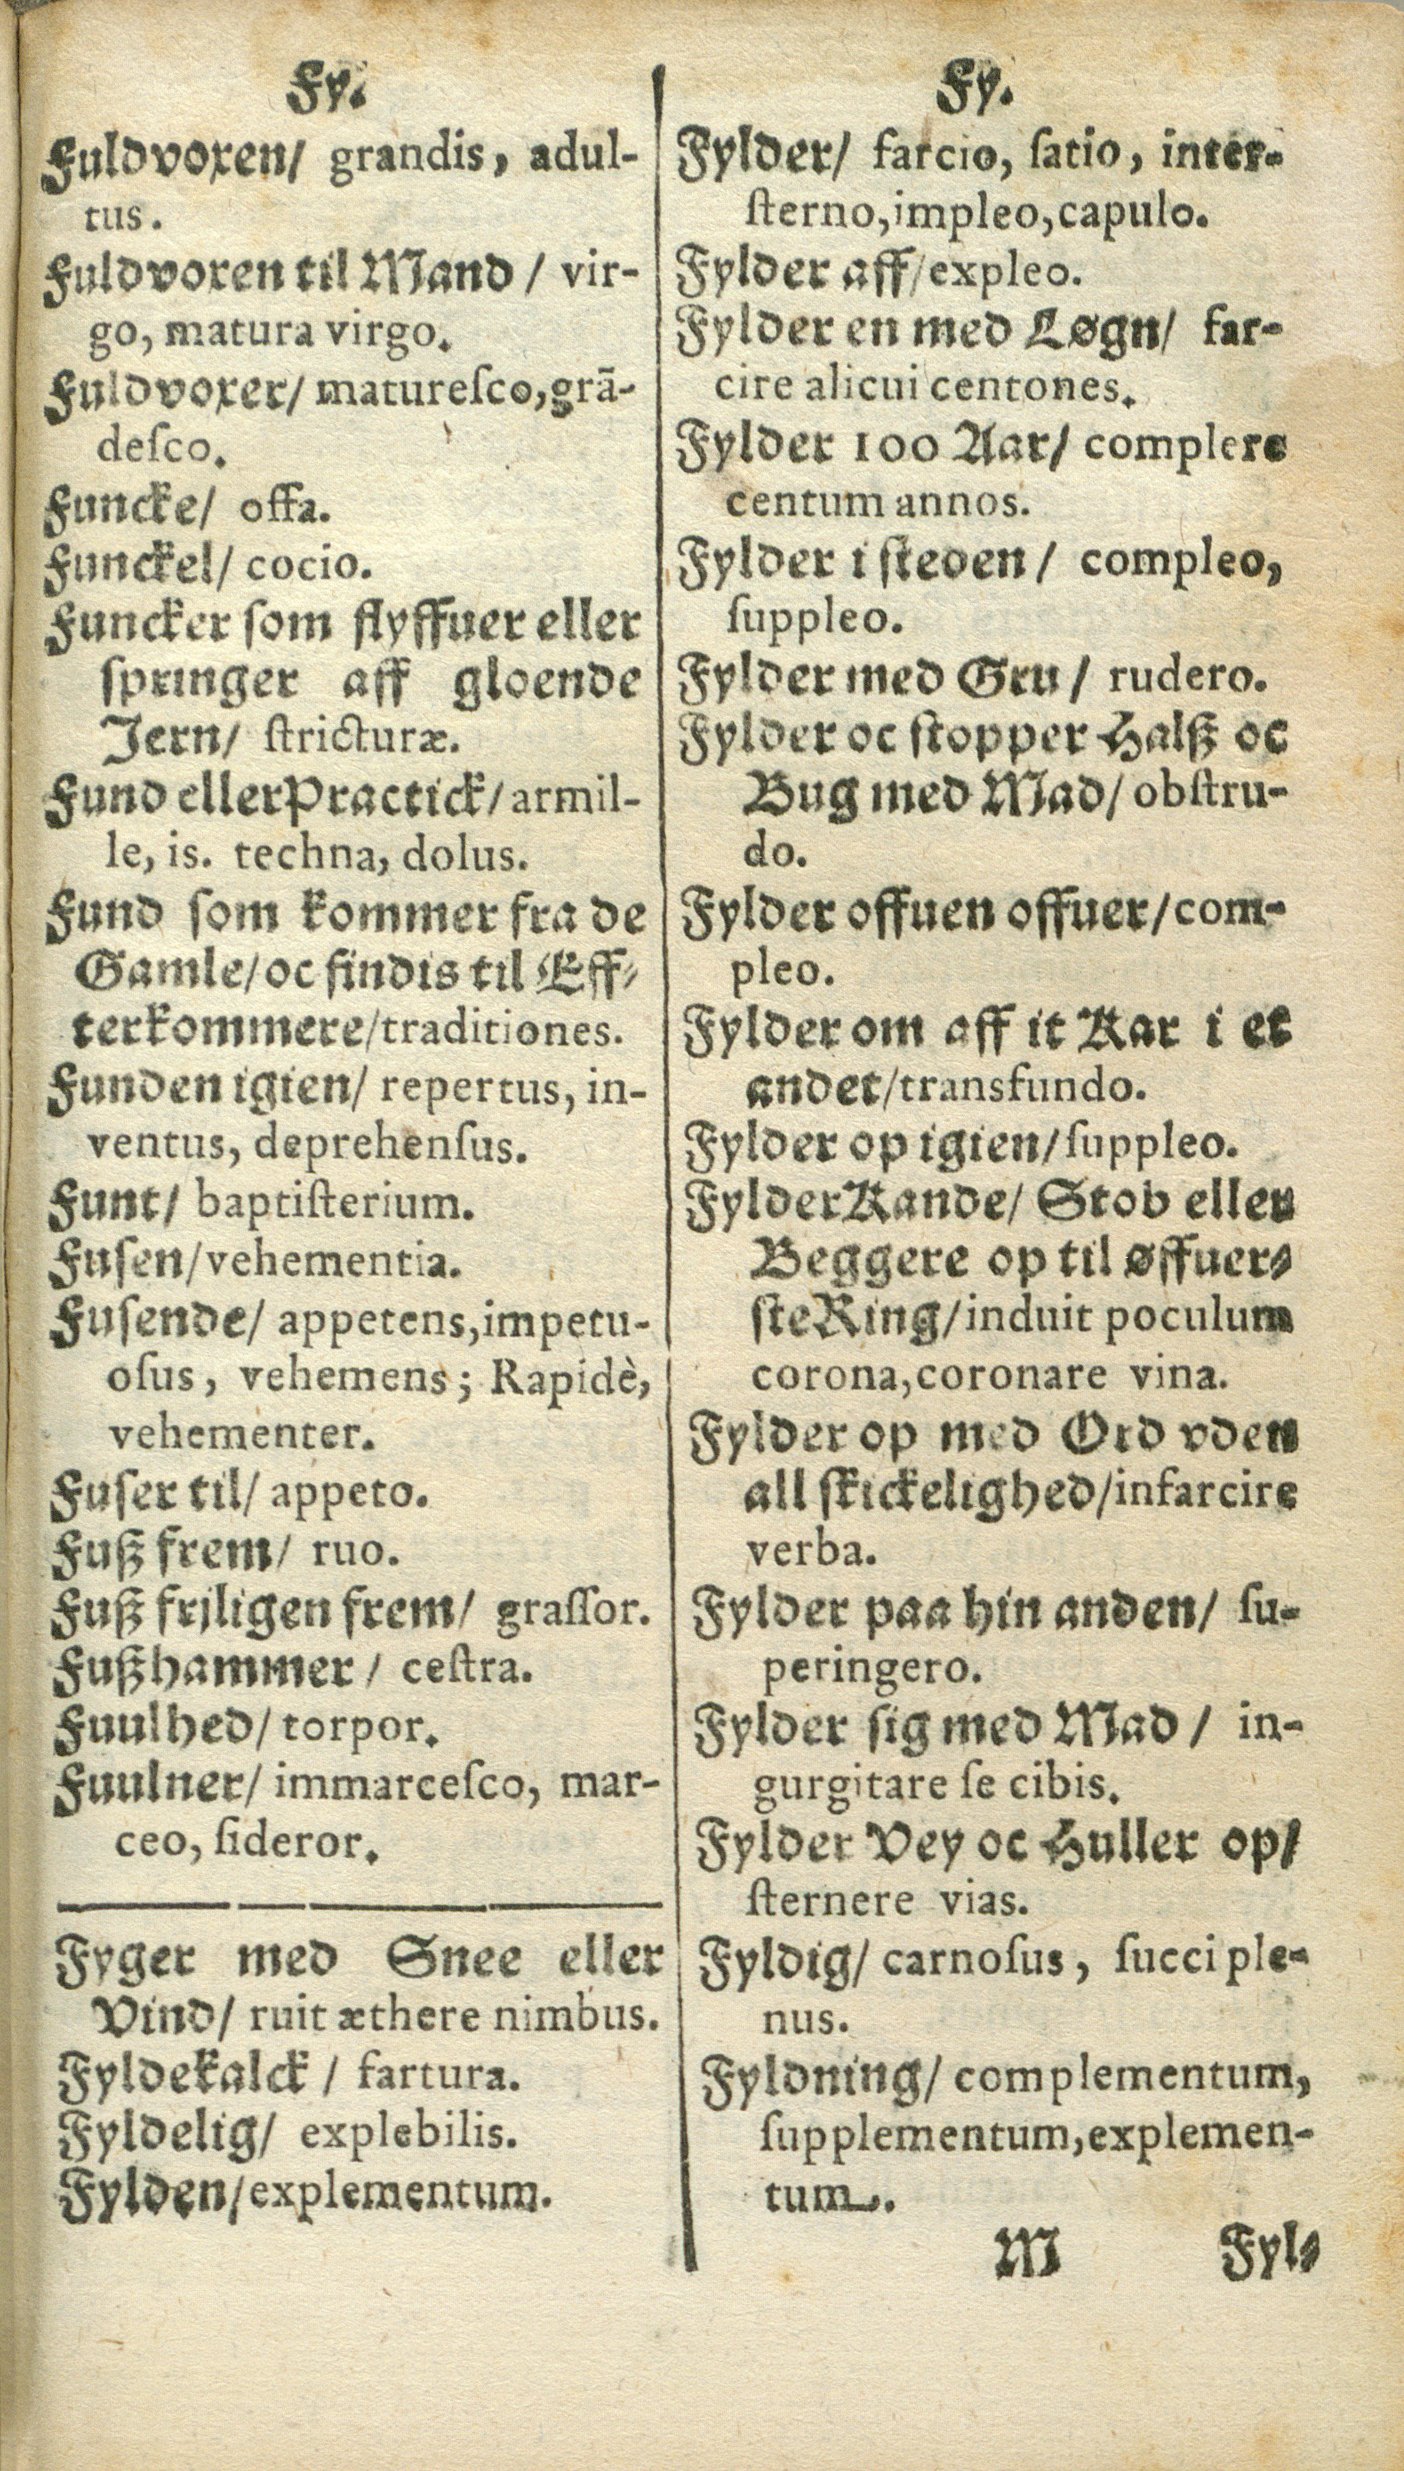 Fy.
Fuldvoxen/ grandis, adul-
tus.
Fuldvoxen til Mand / vir-
go, matura virgo.
Fuldvoxer/ matureſco,grã-
deſco.
Funcke/ offa.
Funckel/ cocio.
Funcker ſom flyffuer eller
springer aff gloende
Jern/ ſtricturæ.
Fund eller Practick/ armil-
le, is. techna, dolus.
Fund ſom kommer fra de
Gamle/ oc findis til Eff-
terkommere/traditiones.
Funden igien/ repertus, in-
ventus, deprehenſus.
Funt/ baptiſterium.
Fuſen/vehementia.
Fuſende/ appetens,impetu-
oſus, vehemens; Rapidè,
vehementer.
Fuſer til/ appeto.
Fuß frem/ ruo.
Fuß frjligen frem/ graſſor.
Fußhammer / ceſtra.
Fuulhed/ torpor.
Fuulner/ immarceſco, mar-
ceo, ſideror.
Fyger med Snee eller
Vind/ ruit æthere nimbus.
Fyldekalck / fartura.
Fyldelig/ explebilis.
Fylden/explementum.
Fy.
Fylder/ farcio, ſatio, inter-
ſterno,impleo,capulo.
Fylder aff/expleo.
Fylder en med Løgn/ far-
cire alicui centones.
Fylder 100 Aar/ complere
centum annos.
Fylder i ſteden / compleo,
ſuppleo.
Fylder med Gru / rudero.
Fylder oc ſtopper Halß oc
Bug med Mad/ obſtru-
do.
Fylder offuen offuer/com-
pleo.
Fylder om aff it Kar i et
andet/transfundo.
Fylder op igien/ſuppleo.
Fylder Kande/ Stob eller
Beggere op til øffuer-
ſte Ring/induit poculum
corona,coronare vina.
Fylder op med Ord vden
all ſkickelighed/infarcire
verba.
Fylder paa hin anden/ ſu-
peringero.
Fylder ſig med Mad / in-
gurgitare ſe cibis.
Fylder Vey oc Huller op/
ſternere vias.
Fyldig/ carnoſus, ſucci ple-
nus.
Fyldning/ complementum,
ſupplementum,explemen-
tum.
M Fyl-